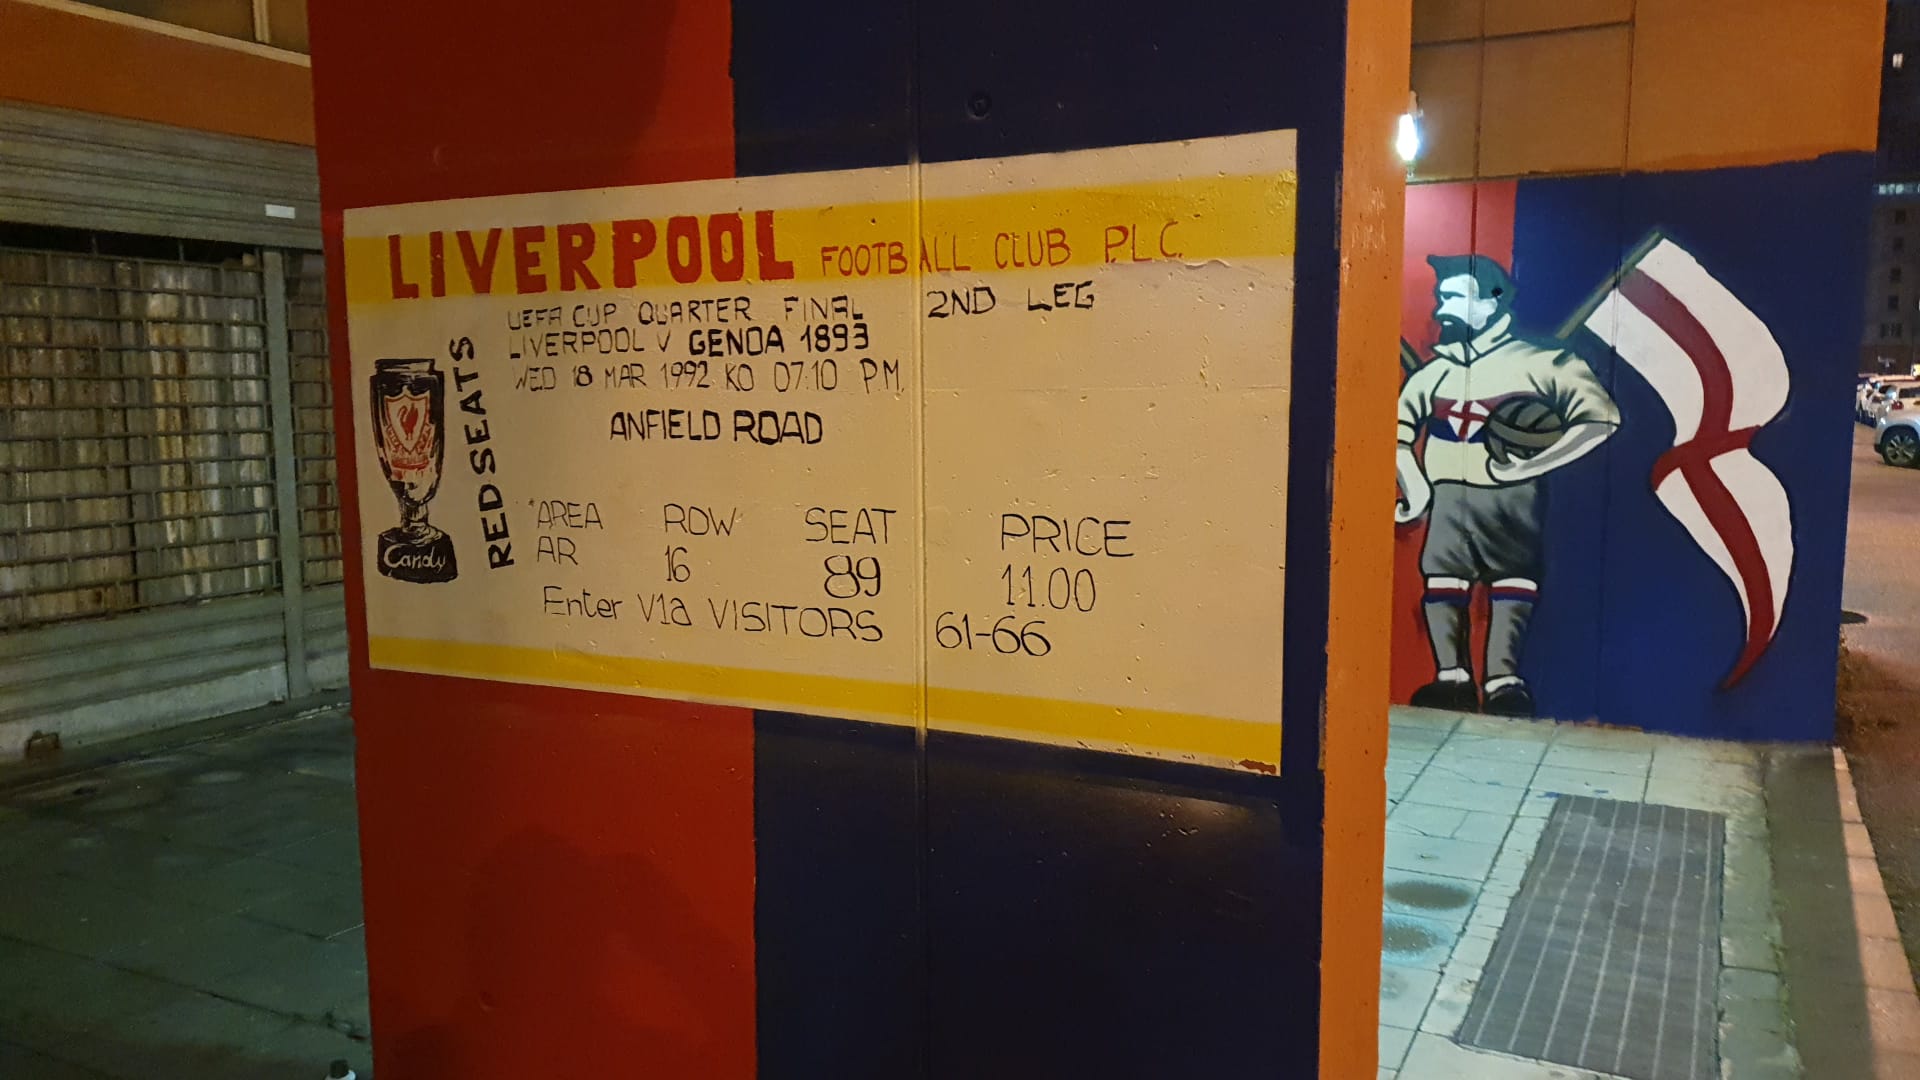 LIVERPOOL FOOTBALL CLUB P.L.C.
UEFA CUP QUARTER FINAL 2ND LEG
LIVERPOOL V GENOA 1893
WED 18 MAR 1992 KO 07:10 P.M.
ANFIELD ROAD
RED SEATS
Candy
AREA ROW SEAT PRICE
AR 16 89 11.00
Enter V1a VISITORS 61-66